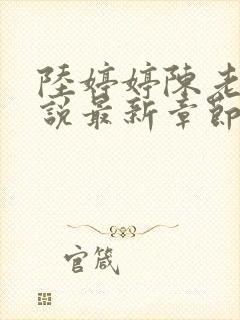 陸婷婷陳老
說最新章節
官箴